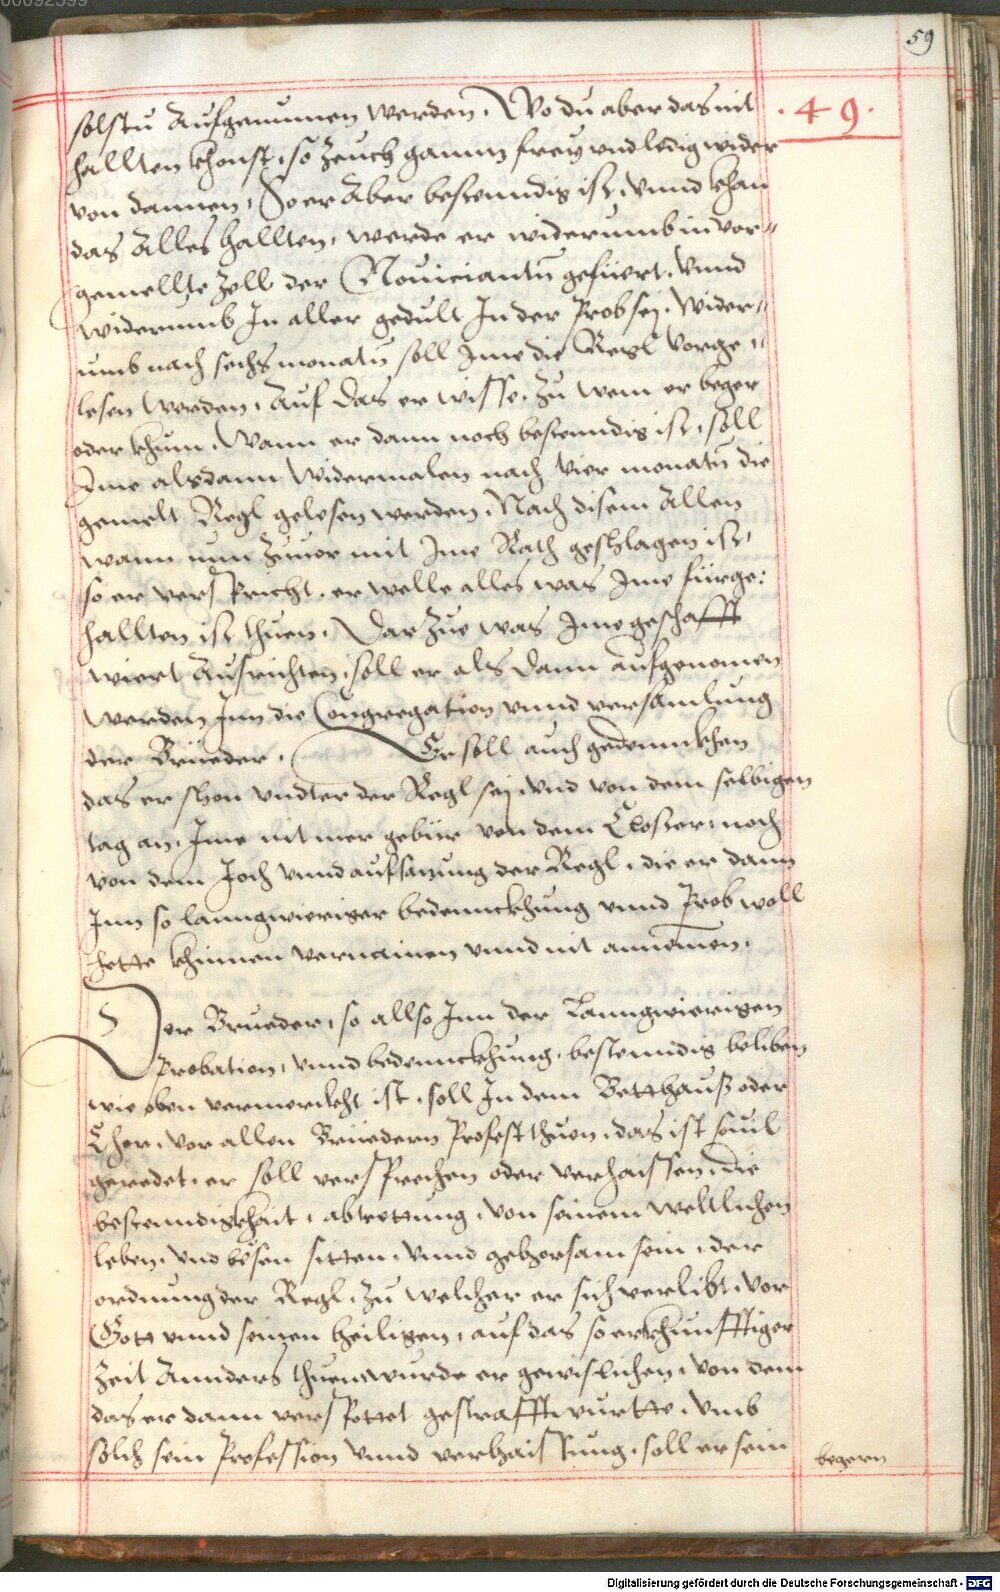 59
. 4 9 .
solstu Aufgenumen werden. Wo du aber das nit
hallten khonst, so zeuch hannen frey vnd ledig wider
von dannen, So er Aber bestenndig ist, vnnd khan
das Alles hallten, werde er widerumb in vor=
gemellte Zell der Nouiciantn gefüert, Vnnd
widerumb In aller gedult In der Prob sej. Wider=
umb nach sechs monatn soll Ime die Regl vorge=
lesen werden, Auf das er wisse, zu wem er beger
oder khum. Wann er dann noch bestenndig ist, soll
Ime alsdann Widermalen nach Vier monatn die
gemelt Regl gelesen werden. Nach disem Allen
wann nun Zuuor mit Ime Rath geschlagen ist,
so er verspricht, er welle alles was Ime fürge:
hallten ist thuen. Darzue was Ime geschafft
wiert Ausrichten, soll er als dann aufgenomen
werden Inn die Congregation vnnd versamlung
der Brüeder. Er soll auch gedennkhen
das er schon vndter der Regl sej, vnd von dem selbigen
tag an, Ime nit mer gebür von dem Closter, noch
von dem Joch vnnd aufsazung der Regl, die er dann
Inn so lanngwieriger bedennckhung vnnd Prob woll
hette khinnen vernainen vnnd nit annemen.
Der Brueder, so allso Inn der Lanngwierigen
Probation, vnnd bedennckhung, bestenndig beliben
wie oben vermerckht ist, soll In dem Betthauß oder
Chor, vor allen Brüedern Profeß thuen, das ist souil
geredet, er soll versprechen oder verhaissen, die
bestenndigkhait, abtrettung, von seinem weltlichen
leben, vnd bösen sitten, vnnd gehorsam sein, der
ordnung der Regl, zu welcher er sich verlibt, vor
Gott vnnd seinen heiligen, auf das so er khunfftiger
Zeit Annders thuen wurde er gewislichen, von dem
das er dann verspottet gestrafft wurtte, vmb
solch sein Profession vnnd verhaissung, soll er sein
begern
Digitalisierung gefördert durch die Deutsche Forschungsgemeinschaft - DFG